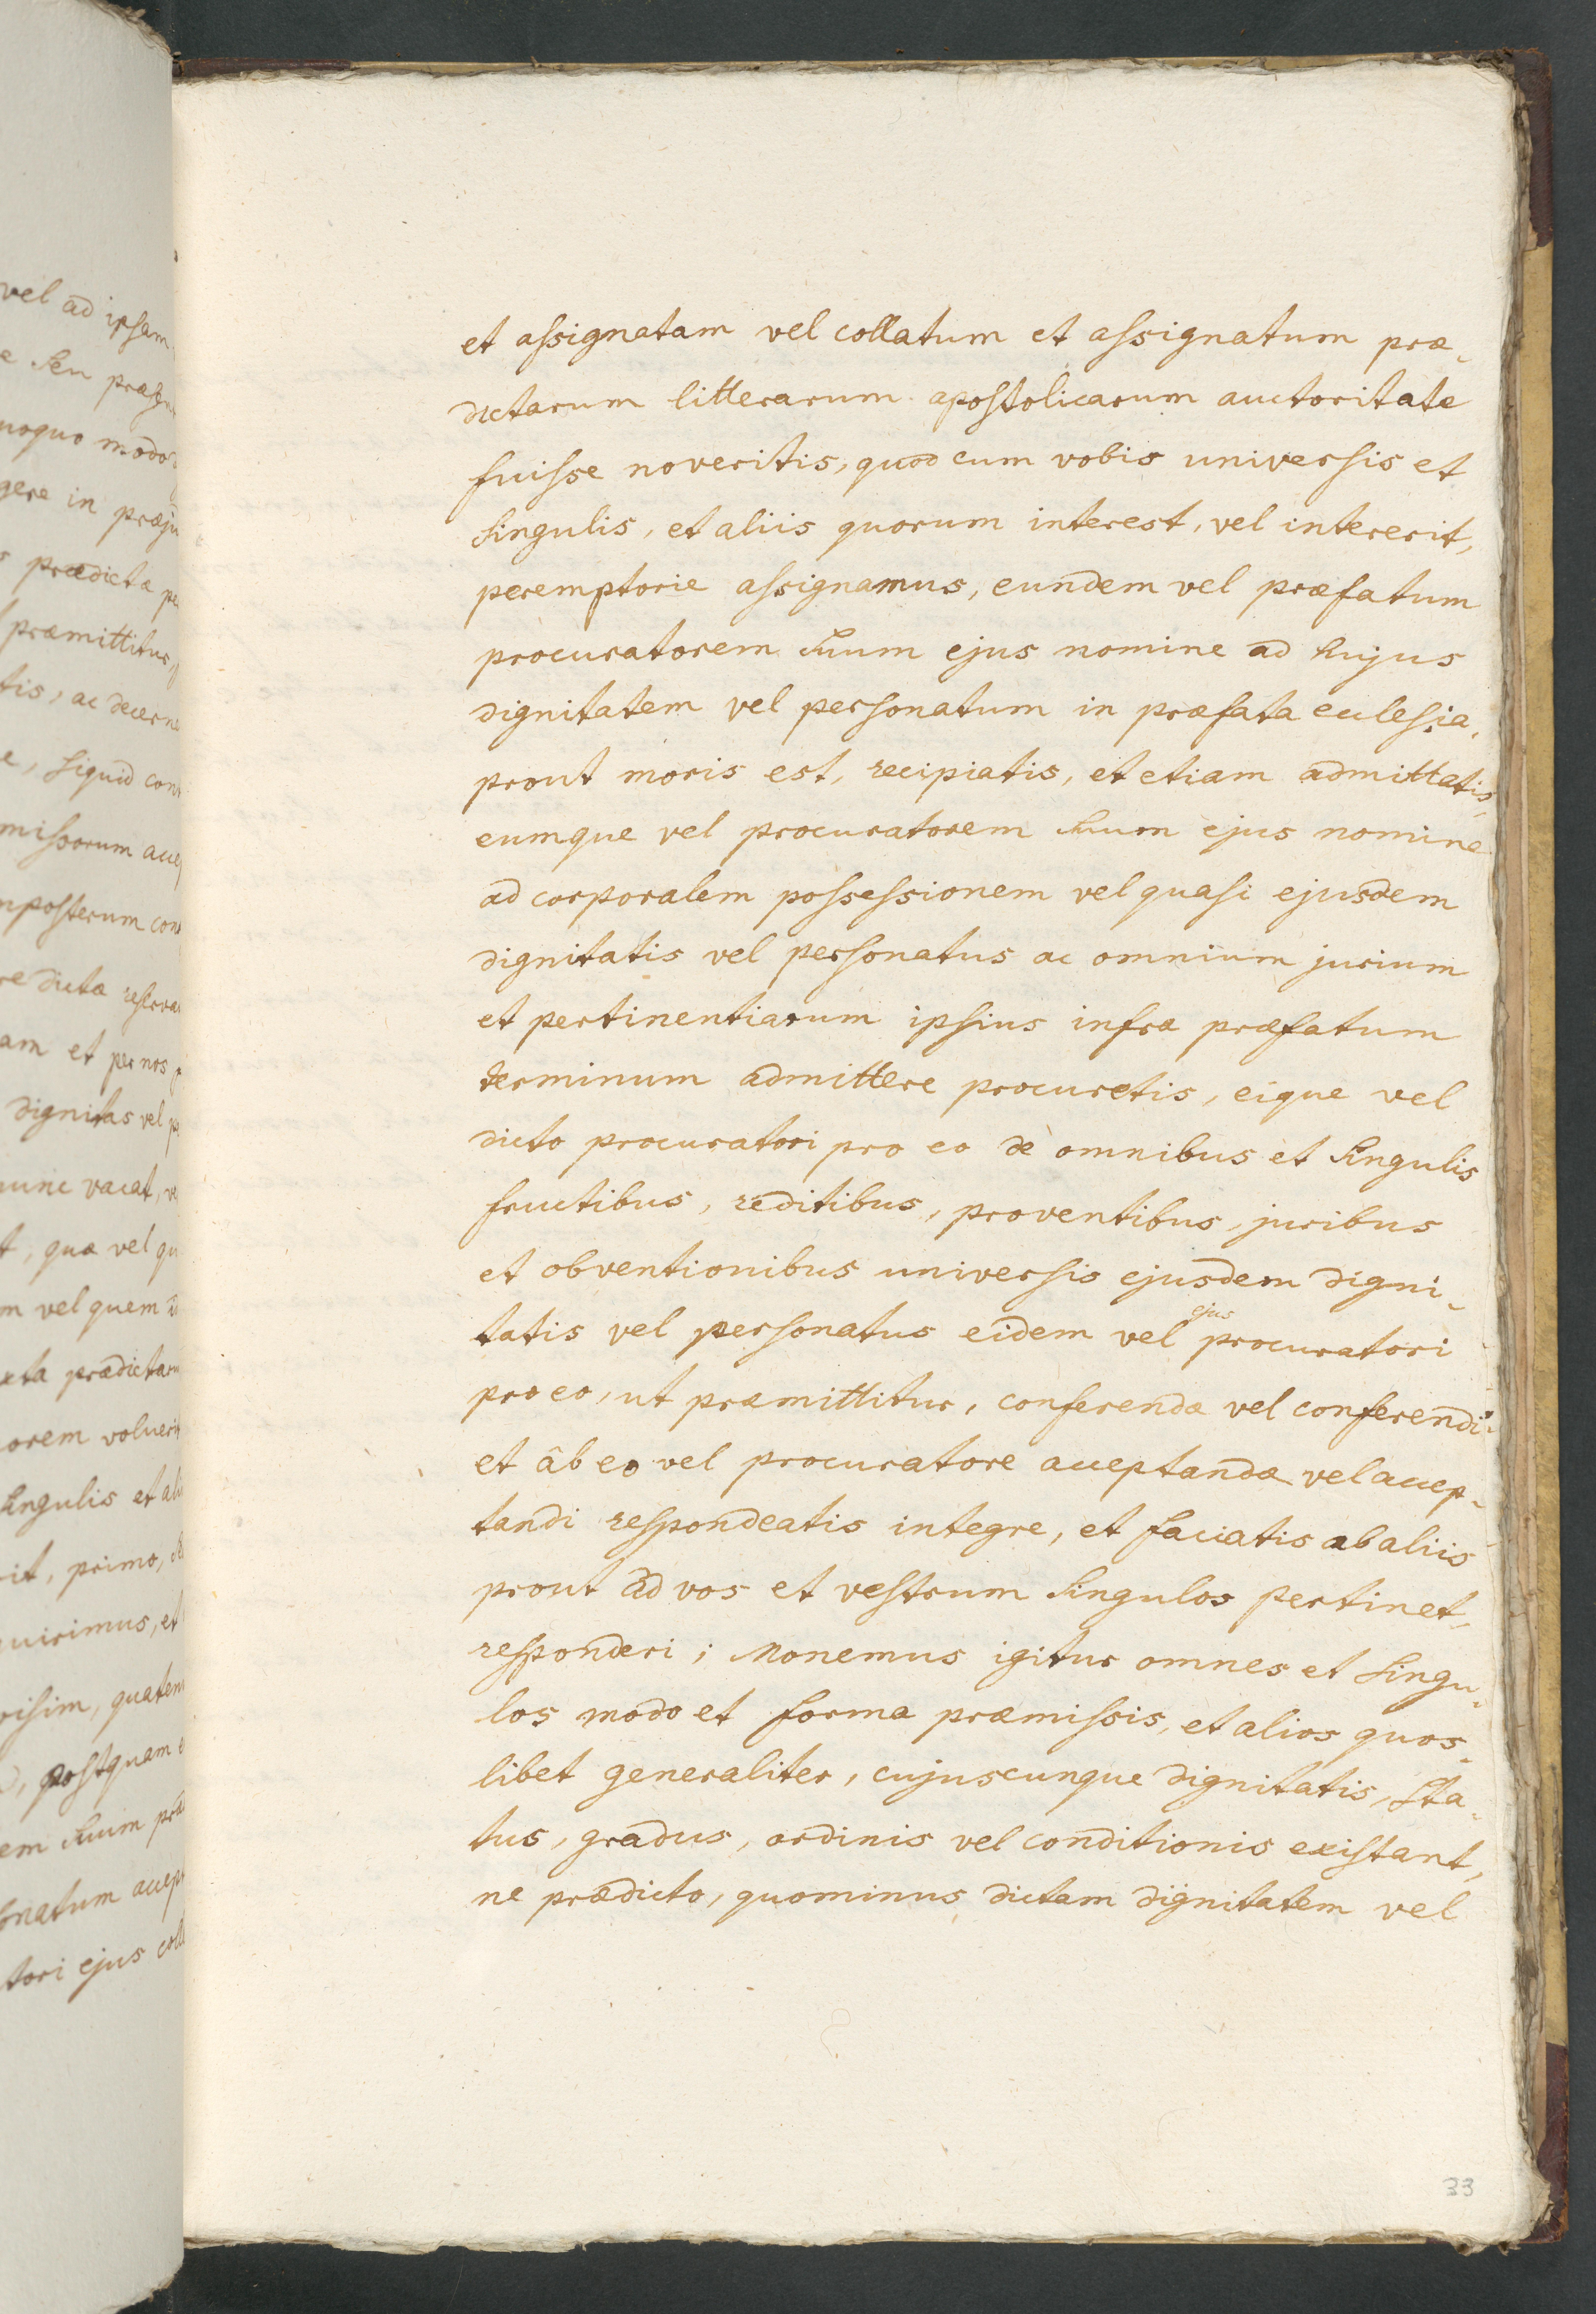 et assignatam vel collatum et assignatum præ-
dictarum litterarum apostolicarum auctoritate
fuisse noveritis, quod cum vobis universis et
singulis, et aliis quorum interest, vel intererit,
peremptorie assignamus, eundem vel præfatum
procuratorem suum ejus nomine ad hujus
dignitatem vel personatum in præfata ecclesia,
prout moris est, recipiatis, et etiam admittatis,
eumque vel procuratorem suum ejus nomine
ad corporalem possessionem vel quasi ejusdem
dignitatis vel personatus ac omnium jurium
et pertinentiarum ipsius infra præfatum
terminum admittere procuretis, eique vel
dicto procuratori pro eo de omnibus et singulis
fructibus, reditibus, proventibus, juribus
et obventionibus universis ejusdem digni-
tatis vel personatus eidem vel ejus procuratori
pro eo, ut præmittitur, conferendæ vel conferendi
et âb eo vel procuratore acceptandæ vel accep-
tandi respondeatis integre, et faciatis ab aliis
prout ad vos et vestrum singulos pertinet,
responderi; Monemus igitur omnes et singu-
los modo et forma præmissis, et alios quos-
libet generaliter, cujuscunque dignitatis, sta-
tus, gradus, ordinis vel conditionis existant,
ne prædicto, quominus dictam dignitatem vel
33
vel ad ipsam
seu
modo
gere in
prædicta
præmittitur,
tis, ac
siquid
missorum
nposterum
dicta
am et per nos
dignitas vel
nunc vacat,
, quæ vel
m vel quem
xta
orem
singulis et
it, primo,
quirimus, et
postquam
em suum
tori ejus